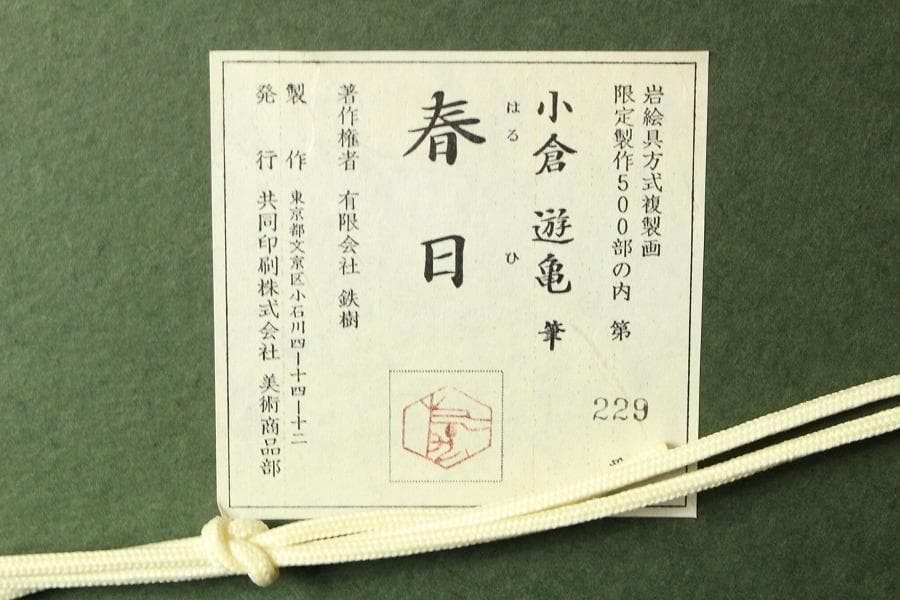 岩絵具方式複製画
限定製作500部の内 第 229
小倉 遊亀 筆
はる ひ
春日
著作権者 有限会社 鉄樹
製作
発行
東京都文京区小石川四ー十四ー十二
共同印刷株式会社 美術商品部